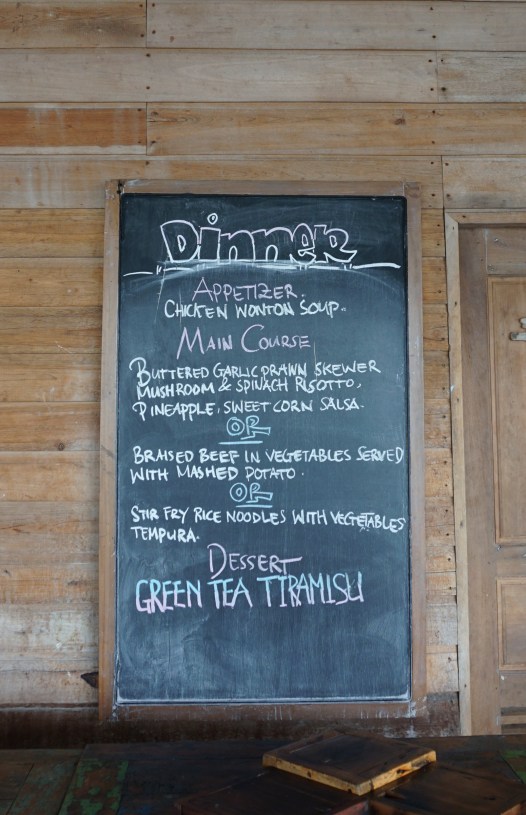 Dinner
APPETIZER.
CHICKEN WONTON SOUP..
MAIN COURSE
BUTTERED GARLIC PRAWN SKEWER
MUSHROOM & SPINACH RISOTTO,
PINEAPPLE, SWEET CORN SALSA.
OR
BRAISED BEEF IN VEGETABLES SERVED
WITH MASHED POTATO.
OR
STIR FRY RICE NOODLES WITH VEGETABLES
TEMPURA.
DESSERT
GREEN TEA TIRAMISU